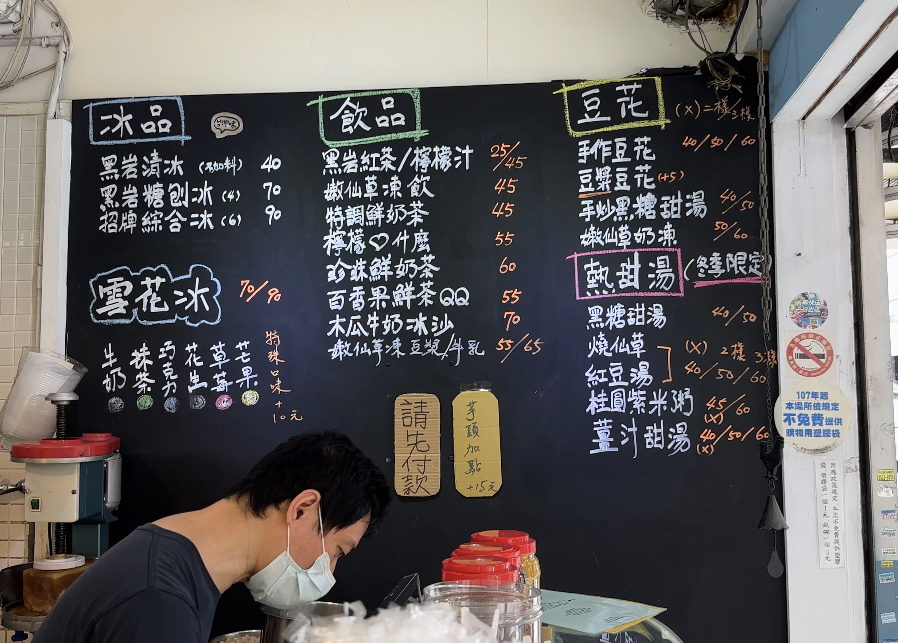 冰品
黑岩清冰 (不加料) 40
黑岩糖刨冰 (4) 70
招牌綜合冰 (6) 90
雪花冰 70/90
牛奶
抹茶
巧克力
花生
草莓
芒果
特殊口味+10元
飲品
黑岩紅茶/檸檬汁 25/45
嫩仙草凍飲 45
特調鮮奶茶 45
檸檬♡什麼 55
珍珠鮮奶茶 60
百香果鮮茶QQ 55
木瓜牛奶冰沙 70
嫩仙草凍豆漿/牛乳 55/65
請先付款
芋頭加點+15元
豆花 (X)=二樣/3樣
手作豆花 40/50/60
豆漿豆花(+5)
手炒黑糖甜湯 40/50
嫩仙草奶凍 50/60
熱甜湯 (冬季限定)
黑糖甜湯 40/50
燒仙草 (X) 2樣 3樣
紅豆湯 40/50/60
桂圓紫米粥 45/60
(X)
薑汁甜湯 40/50/60
(X)
107年起
本場所依規定
不免費提供
購物用塑膠袋